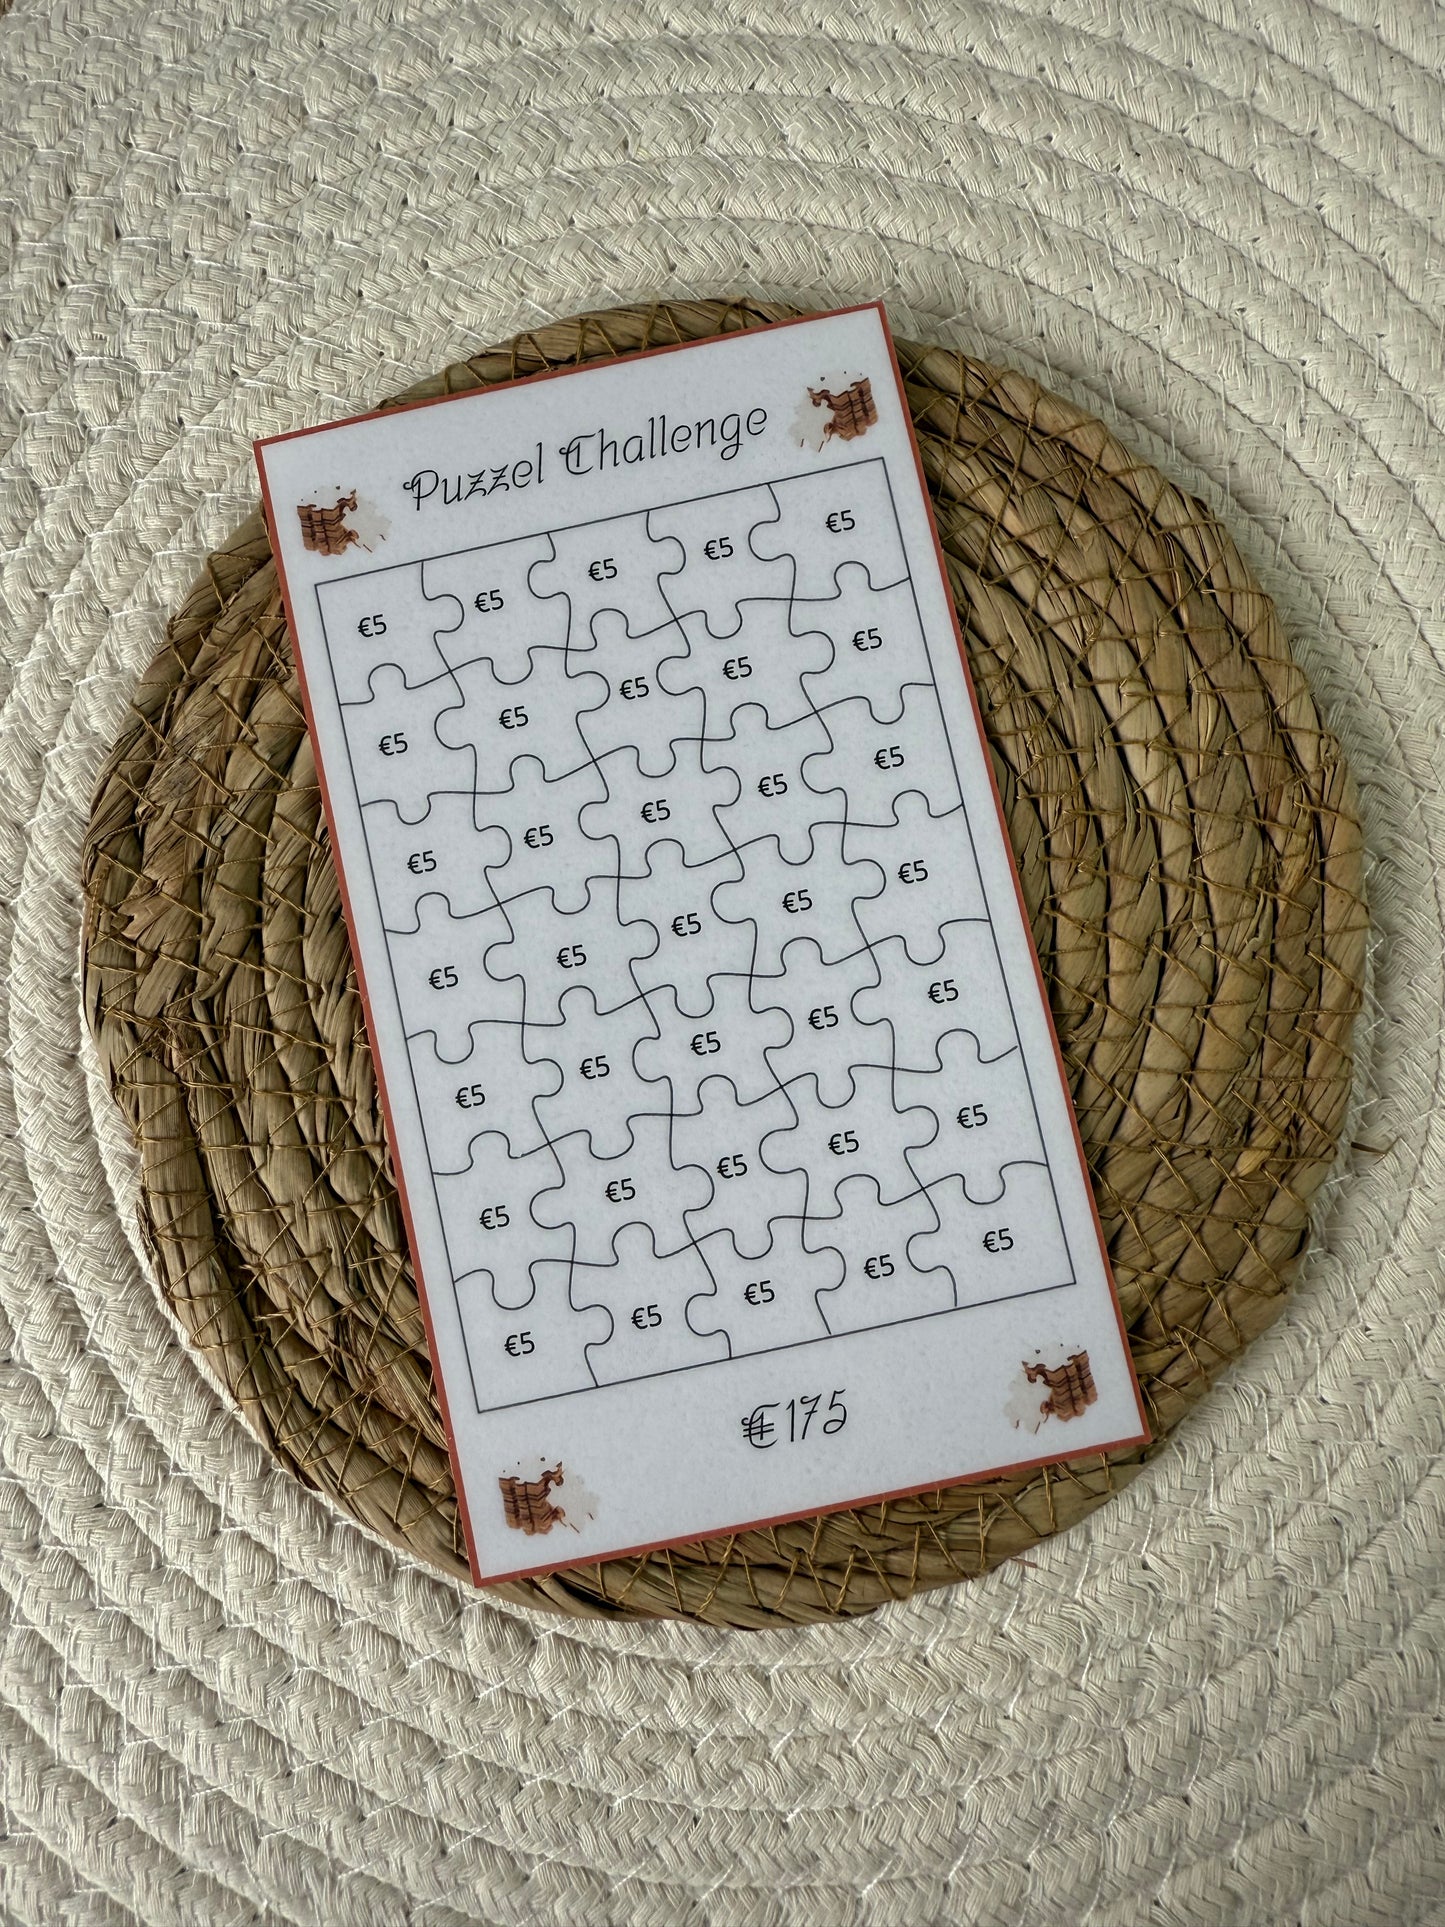 Puzzel Challenge
€5 €5 €5 €5 €5
€5 €5 €5 €5 €5
€5 €5 €5 €5 €5
€5 €5 €5 €5 €5
€5 €5 €5 €5 €5
€5 €5 €5 €5 €5
€5 €5 €5 €5 €5
€175